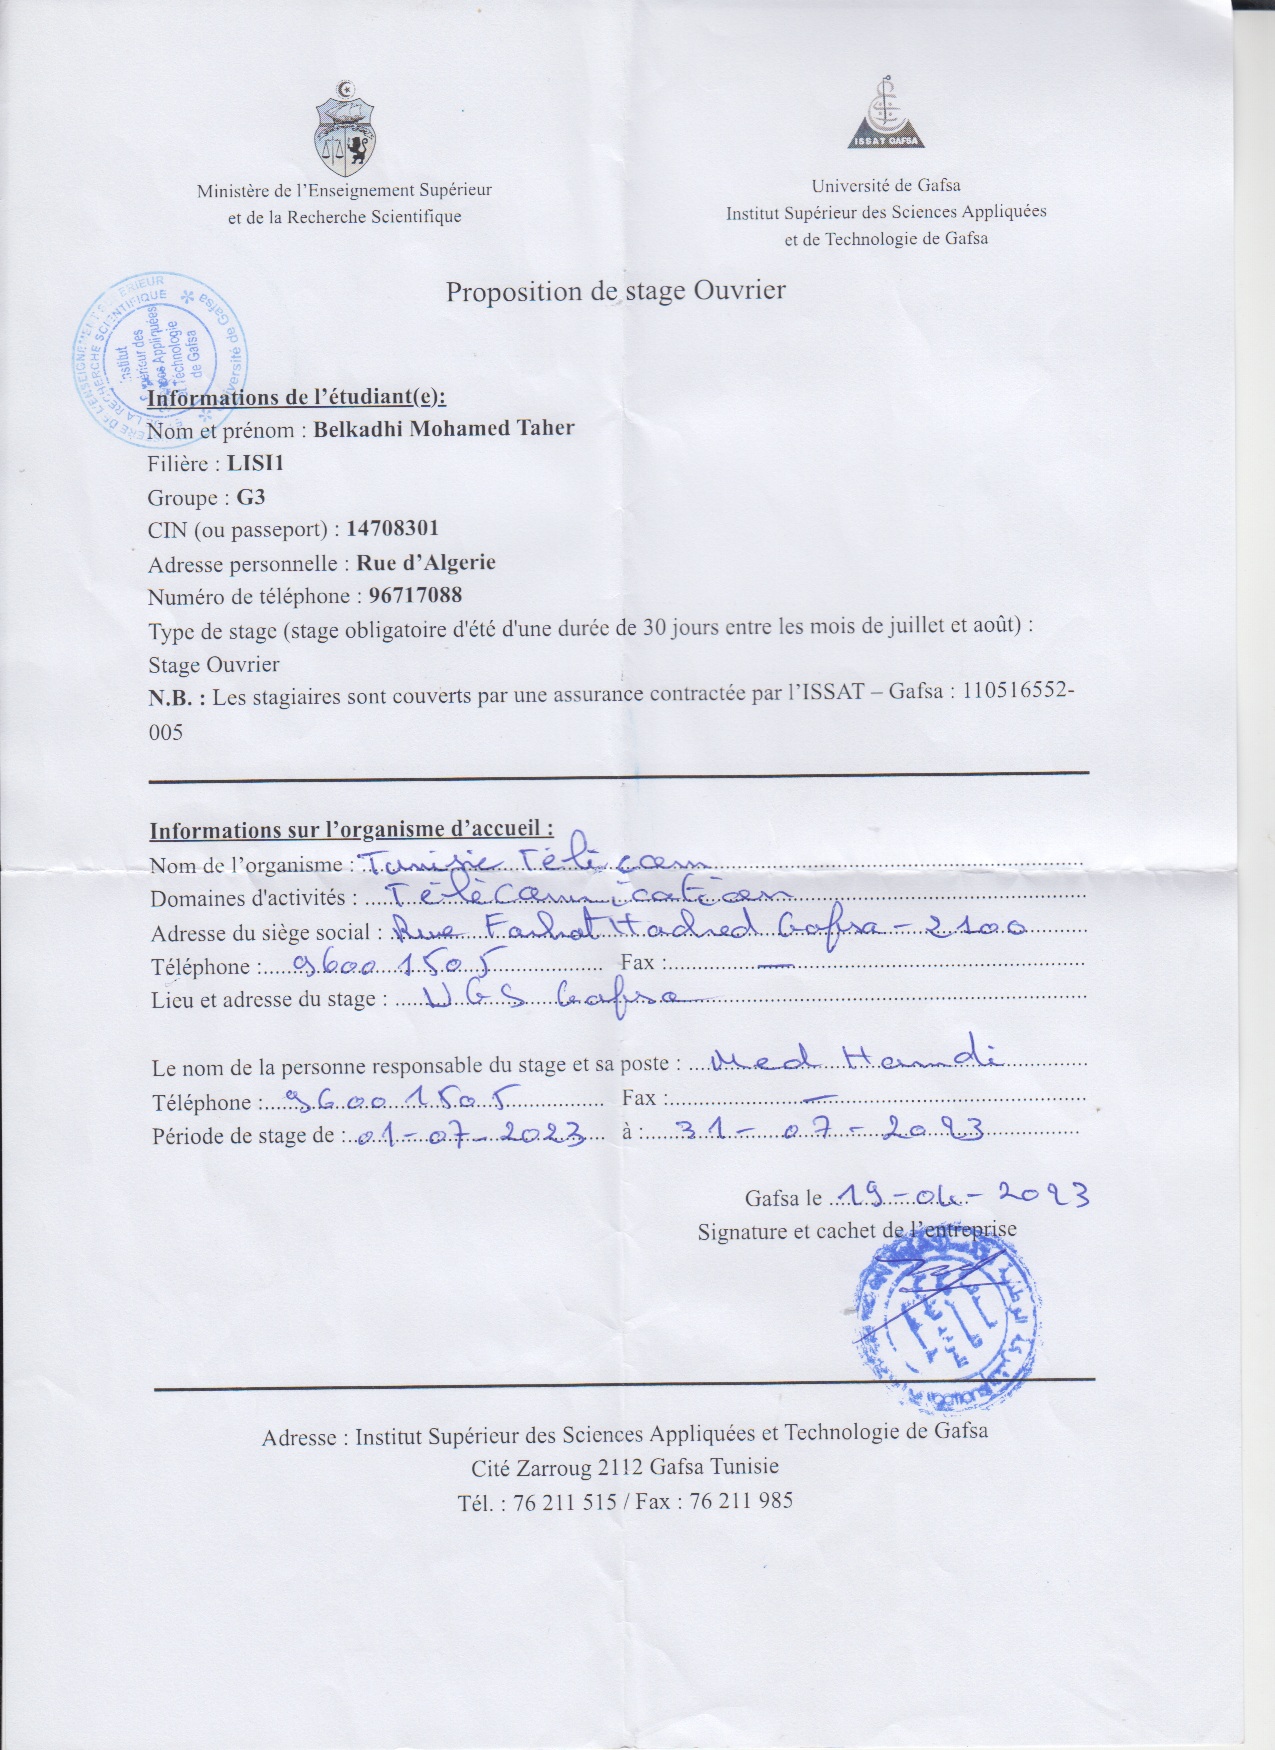 ISSAT GAFSA
Ministère de l'Enseignement Supérieur
et de la Recherche Scientifique
Université de Gafsa
Institut Supérieur des Sciences Appliquées
et de Technologie de Gafsa
Proposition de stage Ouvrier
Institut
Supérieur des
Sciences Appliquées
et Technologie
de Gafsa
Université de Gafsa
Informations de l'étudiant(e):
Nom et prénom : Belkadhi Mohamed Taher
Filière : LISI1
Groupe : G3
CIN (ou passeport) : 14708301
Adresse personnelle : Rue d'Algerie
Numéro de téléphone : 96717088
Type de stage (stage obligatoire d'été d'une durée de 30 jours entre les mois de juillet et août) :
Stage Ouvrier
N.B. : Les stagiaires sont couverts par une assurance contractée par l'ISSAT – Gafsa : 110516552-
005
Informations sur l'organisme d'accueil :
Nom de l'organisme : Tunisie Télécom
Domaines d'activités : Télécommunication
Adresse du siège social : Rue Farhat Hached Gafsa - 2100
Téléphone : 96001505 Fax : —
Lieu et adresse du stage : UGS Gafsa
Le nom de la personne responsable du stage et sa poste : Med Hamdi
Téléphone : 96001505 Fax : —
Période de stage de : 01-07-2023 à : 31-07-2023
Gafsa le 19-04-2023
Signature et cachet de l'entreprise
Adresse : Institut Supérieur des Sciences Appliquées et Technologie de Gafsa
Cité Zarroug 2112 Gafsa Tunisie
Tél. : 76 211 515 / Fax : 76 211 985